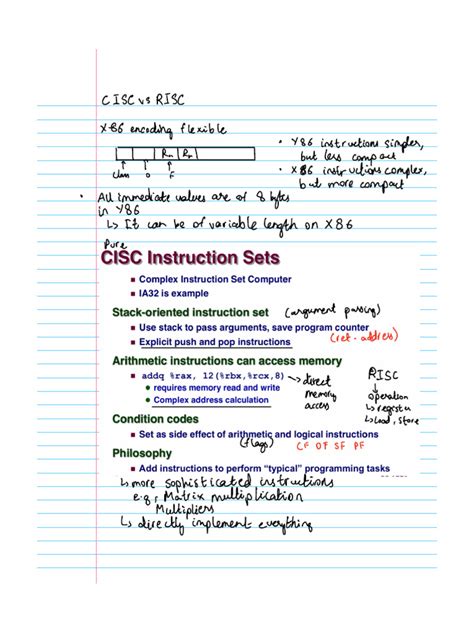 CISC vs RISC
X86 encoding flexible
Rn Rn
class o F
• Y86 instructions simpler,
but less compact
• X86 instructions complex,
but more compact
• All immediate values are of 8 bytes
in Y86
↳ It can be of variable length on X86
Pure
CISC Instruction Sets
■ Complex Instruction Set Computer
■ IA32 is example
Stack-oriented instruction set (argument passing)
■ Use stack to pass arguments, save program counter
■ Explicit push and pop instructions (ret. address)
Arithmetic instructions can access memory
■ addq %rax, 12(%rbx,%rcx,8) → direct
memory
access
● requires memory read and write
● Complex address calculation
RISC
↓
operation
↳ register
↳ load, store
Condition codes
■ Set as side effect of arithmetic and logical instructions
(flags) CF OF SF PF
Philosophy
■ Add instructions to perform “typical” programming tasks
↳ more sophisticated instructions
e.g., Matrix multiplication
Multipliers
↳ directly implement everything